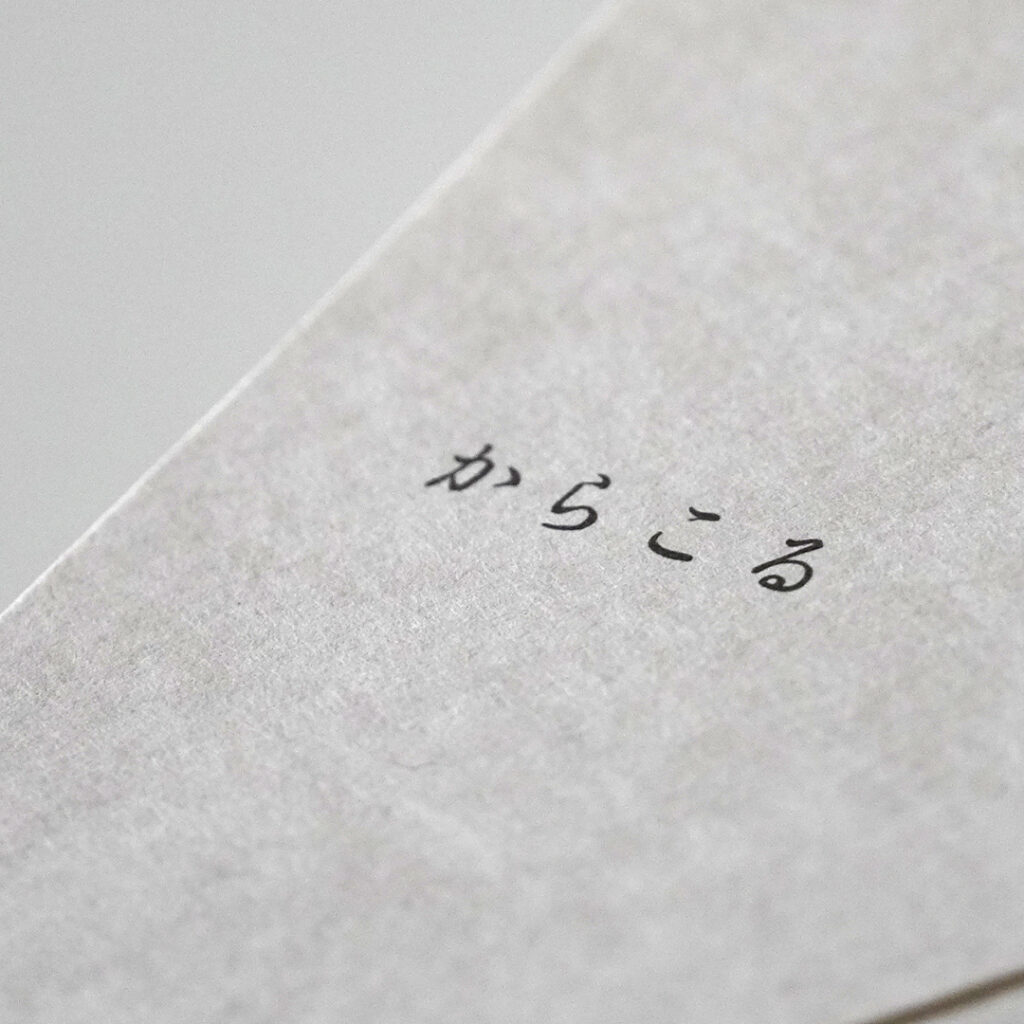 からこる